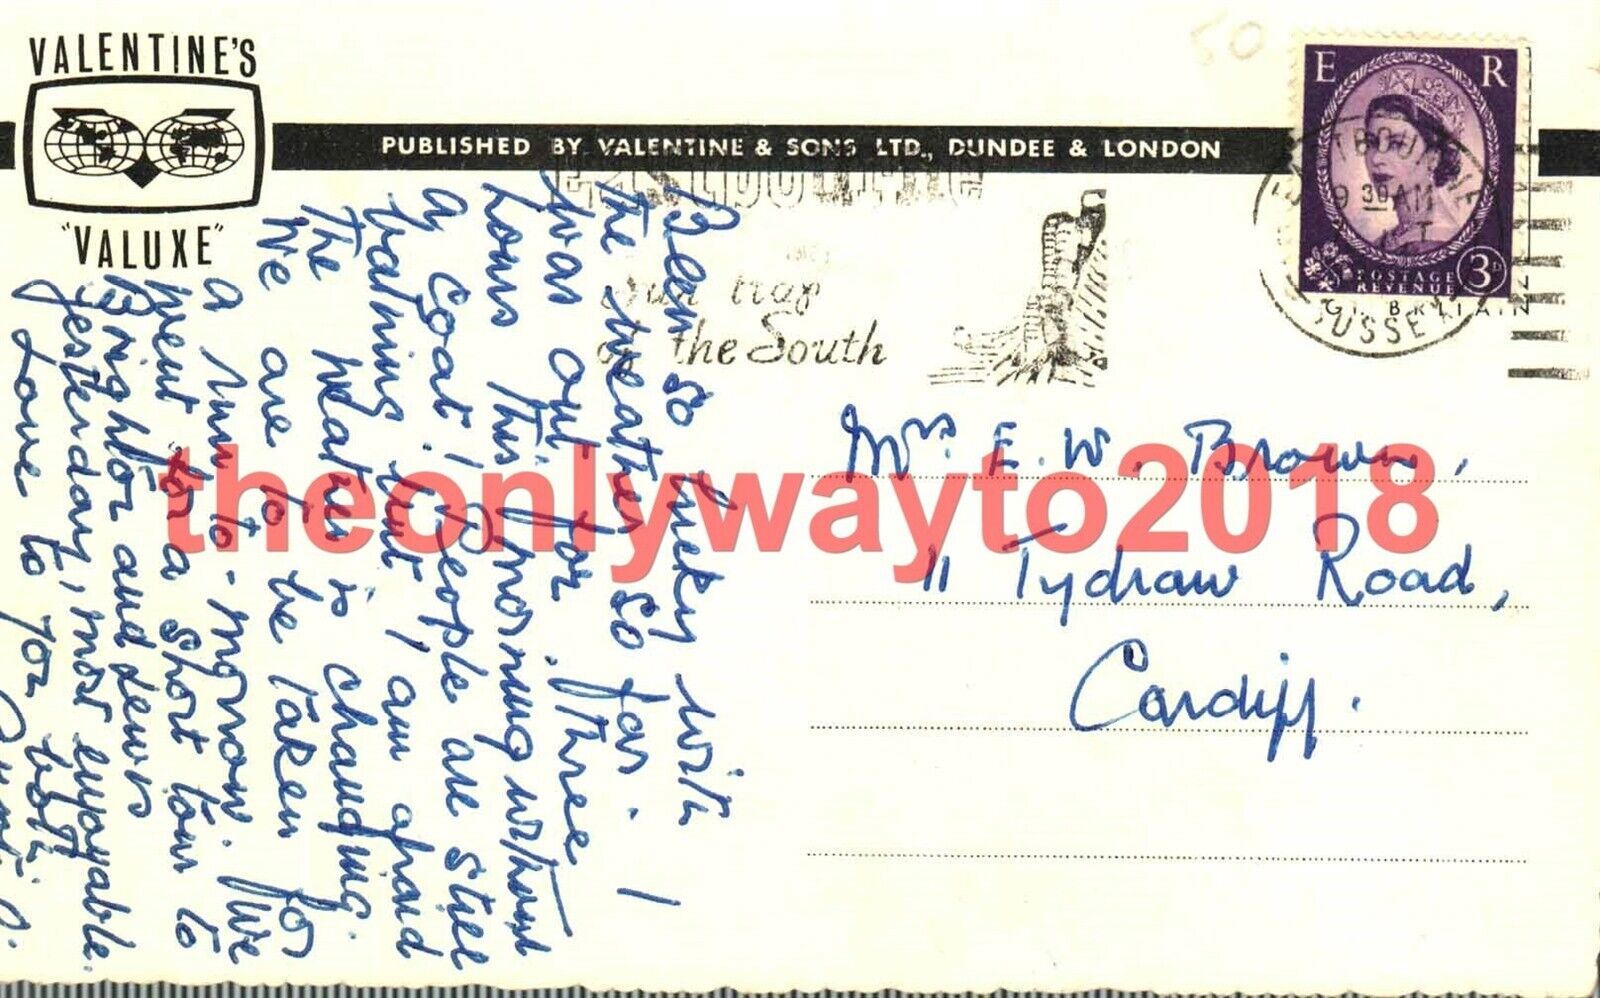 VALENTINE'S
"VALUXE"
PUBLISHED BY VALENTINE & SONS LTD., DUNDEE & LONDON
50
E R
POSTAGE
REVENUE
3D
9 30 AM
SUSSEX
GT. BRITAIN
EASTBOURNE
Sun trap
of the South
Been so lucky with
the weather so far. I
was out for three
hours this morning without
a coat! People are still
bathing but I am afraid
the weather is changing.
We are to be taken for
a run to-morrow. We
went for a short tour to
Brighton and Lewes
yesterday, most enjoyable.
Love to you both
Mrs. E. W. Brown,
11 Tydraw Road,
Cardiff.
theonlywayto2018